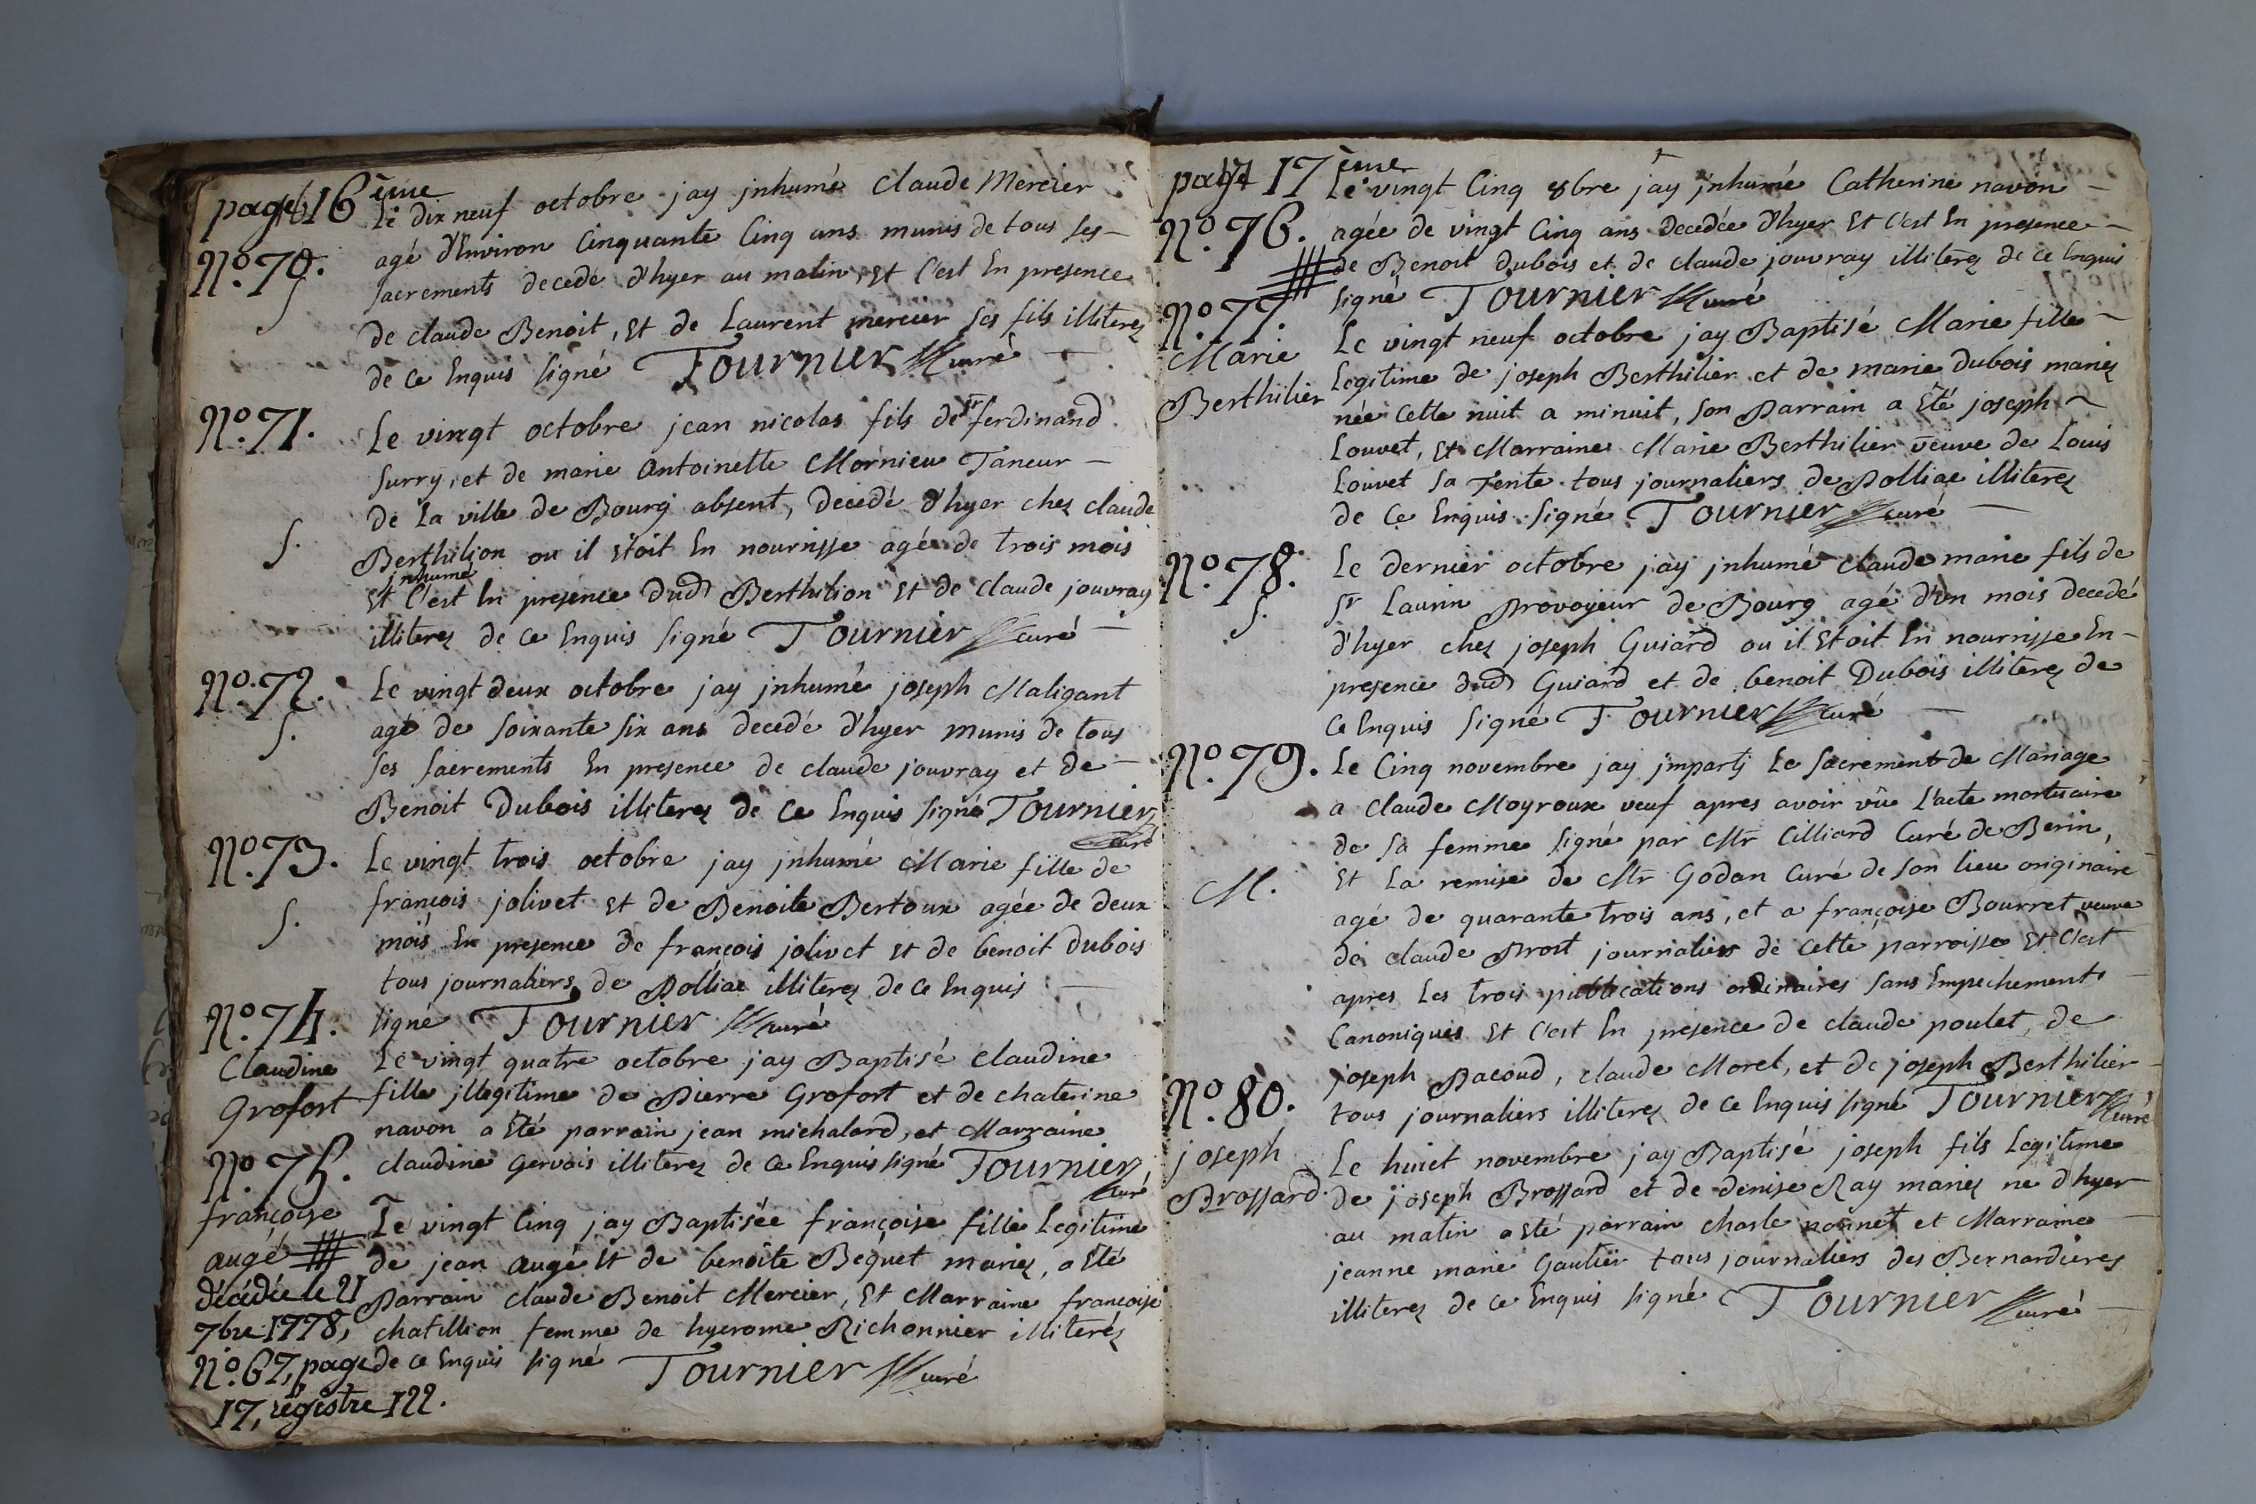 page 16ème
Le dix neuf octobre jay jnhumé Claude Mercier
No. 70.
agé d'Environ Cinquante Cinq ans munis de tous ses
S
sacrements decede d'hyer au matin, et C'est En presence
de claude Benoit, Et de Laurent mercier ses fils illiterez
de ce Enquis signé Tournier curé
No. 71.
Le vingt octobre jean nicolas fils de sr ferdinand
surry, et de marie antoinette Mornieu Taneur
de la ville de Bourg absent, decedé d'hyer chez claude
S.
Berthilion ou il Etoit En nourrisse agé de trois mois
jnhumé
Et C'est En presence dud Berthilion Et de claude jouvray
illiterez de ce Enquis signé Tournier curé
No. 72.
Le vingt deux octobre jay jnhumé joseph Maligant
S.
agé de soixante six ans decedé d'hyer munis de tous
ses sacrements En presence de claude jouvray et de
Benoit Dubois illiterez de ce Enquis signé Tournier
curé
No. 73.
Le vingt trois octobre jay jnhumé Marie fille de
S.
françois jolivet Et de Benoite Bertoux agée de deux
mois En presence de françois jolivet Et de benoit dubois
tous journaliers de Polliac illiterez de ce Enquis
signé Tournier curé
No. 74.
Claudine
Grofort
Le vingt quatre octobre jay Baptisé claudine
fille jllegitime de Pierre Grofort et de chaterine
navon a Eté parrain jean michalard, et Marraine
claudine Gervais illiterez de ce Enquis signé Tournier
curé
No. 75.
françoise
augé
décédée le 21
7bre 1778,
No. 67, page
17, régistre 122.
Le vingt Cinq jay Baptisée françoise fille Legitime
de jean augé Et de benoite Bequet mariez, a Eté
Parrain claude Benoit Mercier, Et Marraine françoise
chatillion femme de hyerome Richonnier illiterez
de ce Enquis signé Tournier curé
page 17ème
No. 76.
Le vingt Cinq 8bre jay jnhumé Catherine navon
agée de vingt Cinq ans decedée d'hyer Et C'est En presence
de Benoit dubois et de claude jouvray illiterez de ce Enquis
signé Tournier curé
No. 77.
Marie
Berthilier
Le vingt neuf octobre jay Baptisé Marie fille
Legitime de joseph Berthilier et de marie dubois mariez
née Cette nuit a minuit, son Parrain a Eté joseph
Louvet, Et Marraine Marie Berthilier veuve de Louis
Louvet sa Tente tous journaliers de Polliac illiterez
de ce Enquis signé Tournier curé
No. 78.
S.
Le dernier octobre jay jnhumé claude marie fils de
sr Laurin Provoyeur de Bourg agé d'un mois decedé
d'hyer chez joseph Guiard ou il Etoit En nourrisse En
presence dud Guiard et de benoit Dubois illiterez de
ce Enquis signé Tournier curé
No. 79.
M.
Le Cinq novembre jay jmparti Le sacrement de Mariage
a claude Moyroux veuf apres avoir vû L'acte mortuaire
de sa femme signé par Mr Cilliard Curé de Berin,
Et La remise de Mr Godan Curé de son lieu originaire
agé de quarante trois ans, et a françoise Bourret veuve
de claude Prost journaliers de cette parroisse Et C'est
apres Les trois publications ordinaires sans Empechements
Canoniques Et C'est En presence de claude poulet, de
joseph Pacoud, claude Morel, et de joseph Berthilier
tous journaliers illiterez de ce Enquis signé Tournier
curé
No. 80.
joseph
Brossard
Le huict novembre jay Baptisé joseph fils Legitime
de joseph Brossard et de denise Ray mariez ne d'hyer
au matin a Eté parrain charle nonnet et Marraine
jeanne marie Gautier tous journaliers des Bernardieres
illiterez de ce Enquis signé Tournier curé